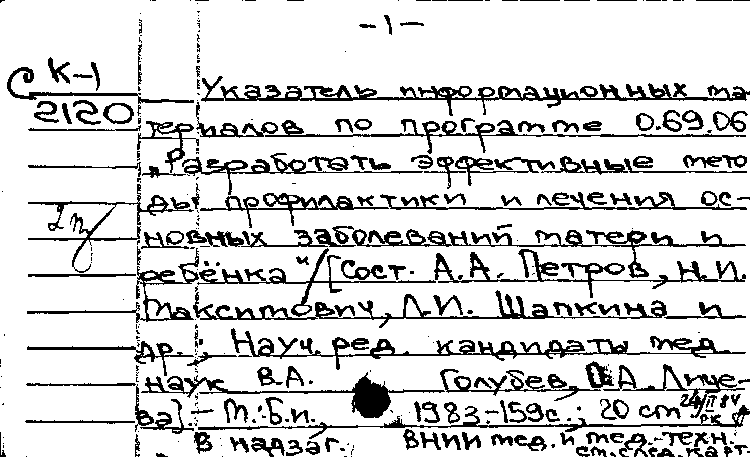 -1-
К-1
2120
Указатель информационных ма-
териалов по программе 0.69.06
„Разработать эффективные мето
ды профилактики и лечения ос-
новных заболеваний матери и
ребёнка" / [Сост. А.А. Петров, Н.И.
Максимович, Л.И. Шапкина и
др.; Науч. ред. кандидаты мед.
наук В.А. Голубев, А. Лице-
ва] – М.: Б.и., 1983.–159с.; 20 см
В надзаг. ВНИИ мед. и мед.-техн.
см. след. карт.